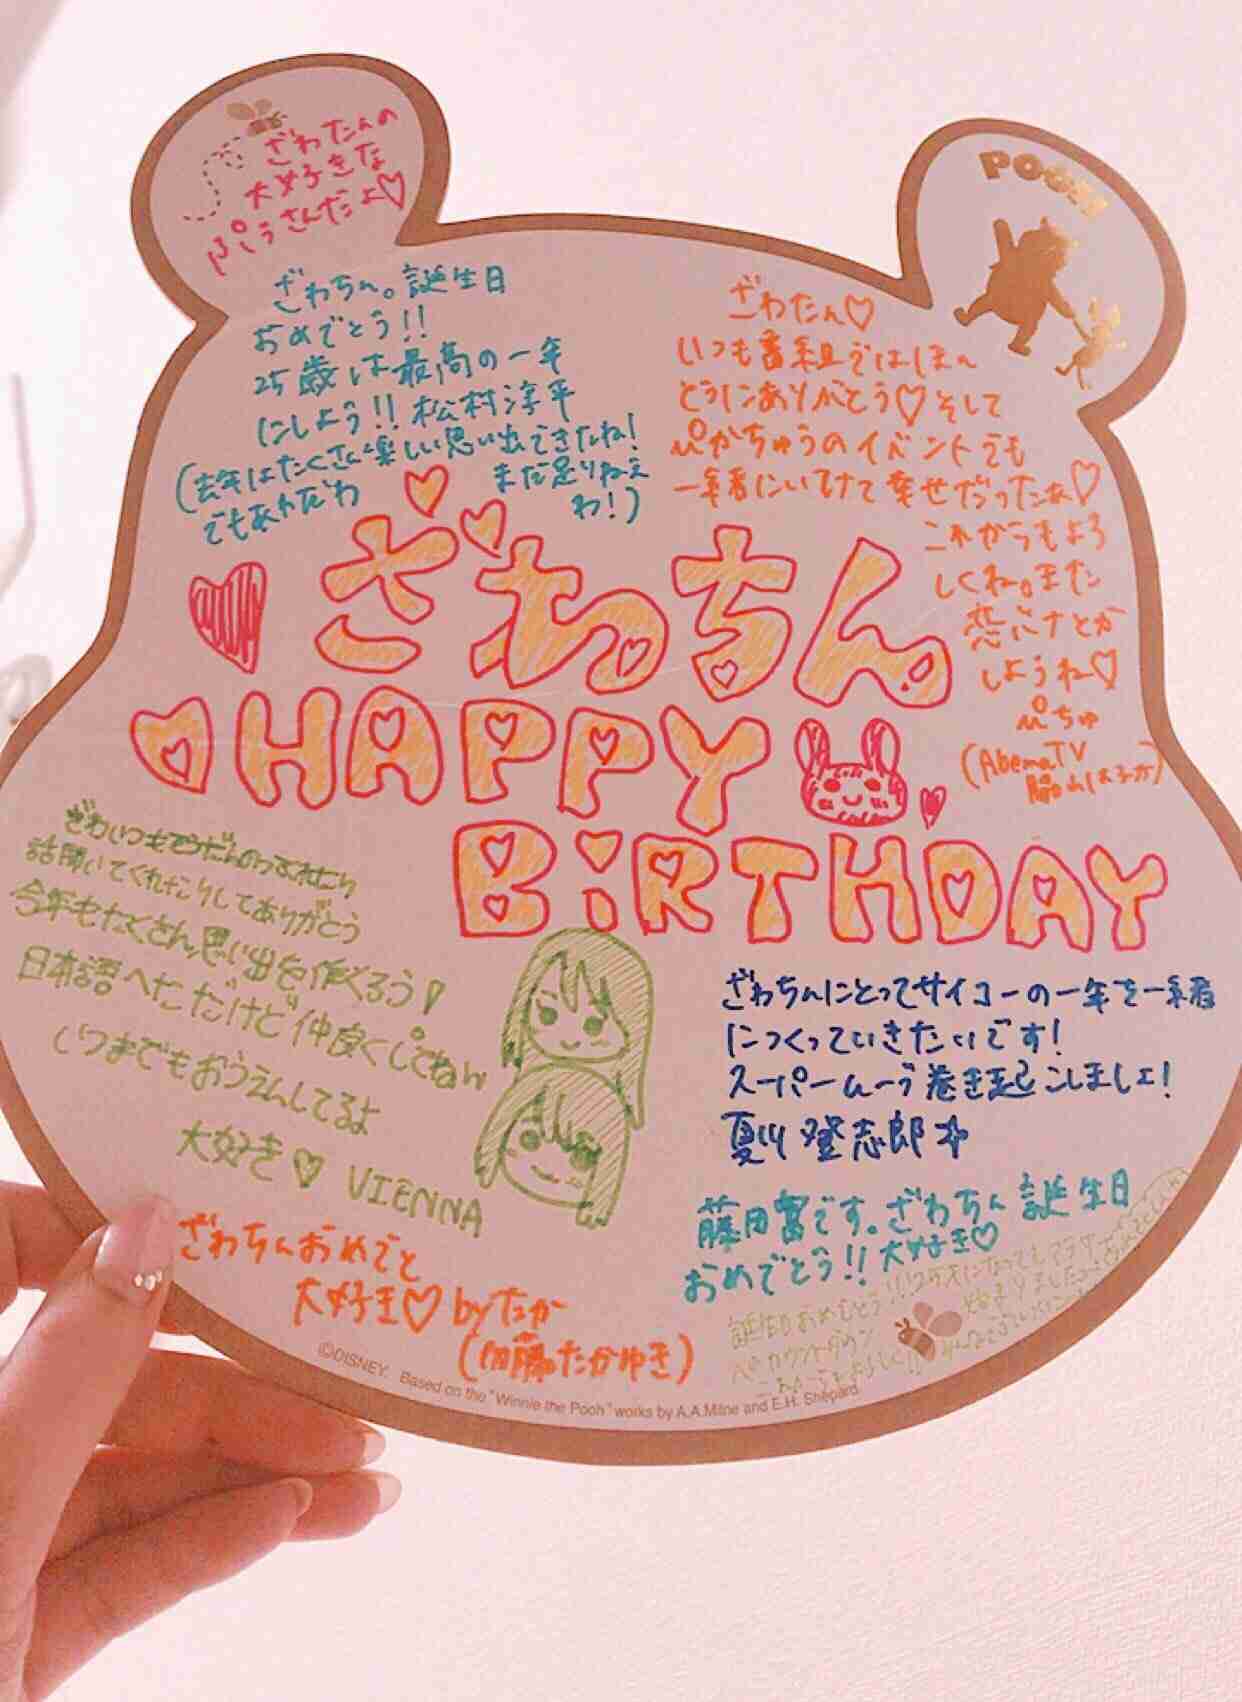 ざわたんの
大好きな
ぷうさんだよ♡
POOH
ざわちん。誕生日
おめでとう!!
25歳は最高の一年
にしよう!! 松村淳平
(去年はたくさん楽しい思い出できたね!
でもあれだわ
まだ足りねえ
わ!)
ざわたん♡
いつも番組ではほん
とうにありがとう♡そして
ぴかちゅうのイベントでも
一緒にいけて幸せだったぁ♡
これからもよろ
しくね。また
恋バナとか
しようね♡
ぴちゅ
(AbemaTV
ざわちん。
HAPPY
BiRTHDAY
ざわいつもそうだんのってくれたり
話聞いてくれたりしてありがとう
今年もたくさん思い出を作くろう!
日本語へただけど仲良くしてねん
いつまでもおうえんしてるよ
大好き♡ VIENNA
ざわちんにとってサイコーの一年を一緒
につくっていきたいです!
スーパームーヴ巻き起こしましェ!
夏川登志郎
ざわちんおめでと
大好き♡ byたか
(伊藤たかゆき)
藤田富です。ざわちん誕生日
おめでとう!! 大好き♡
誕生日おめでとう!!
カウントダウン
©DISNEY. Based on the "Winnie the Pooh" works by A.A.Milne and E.H. Shepard.